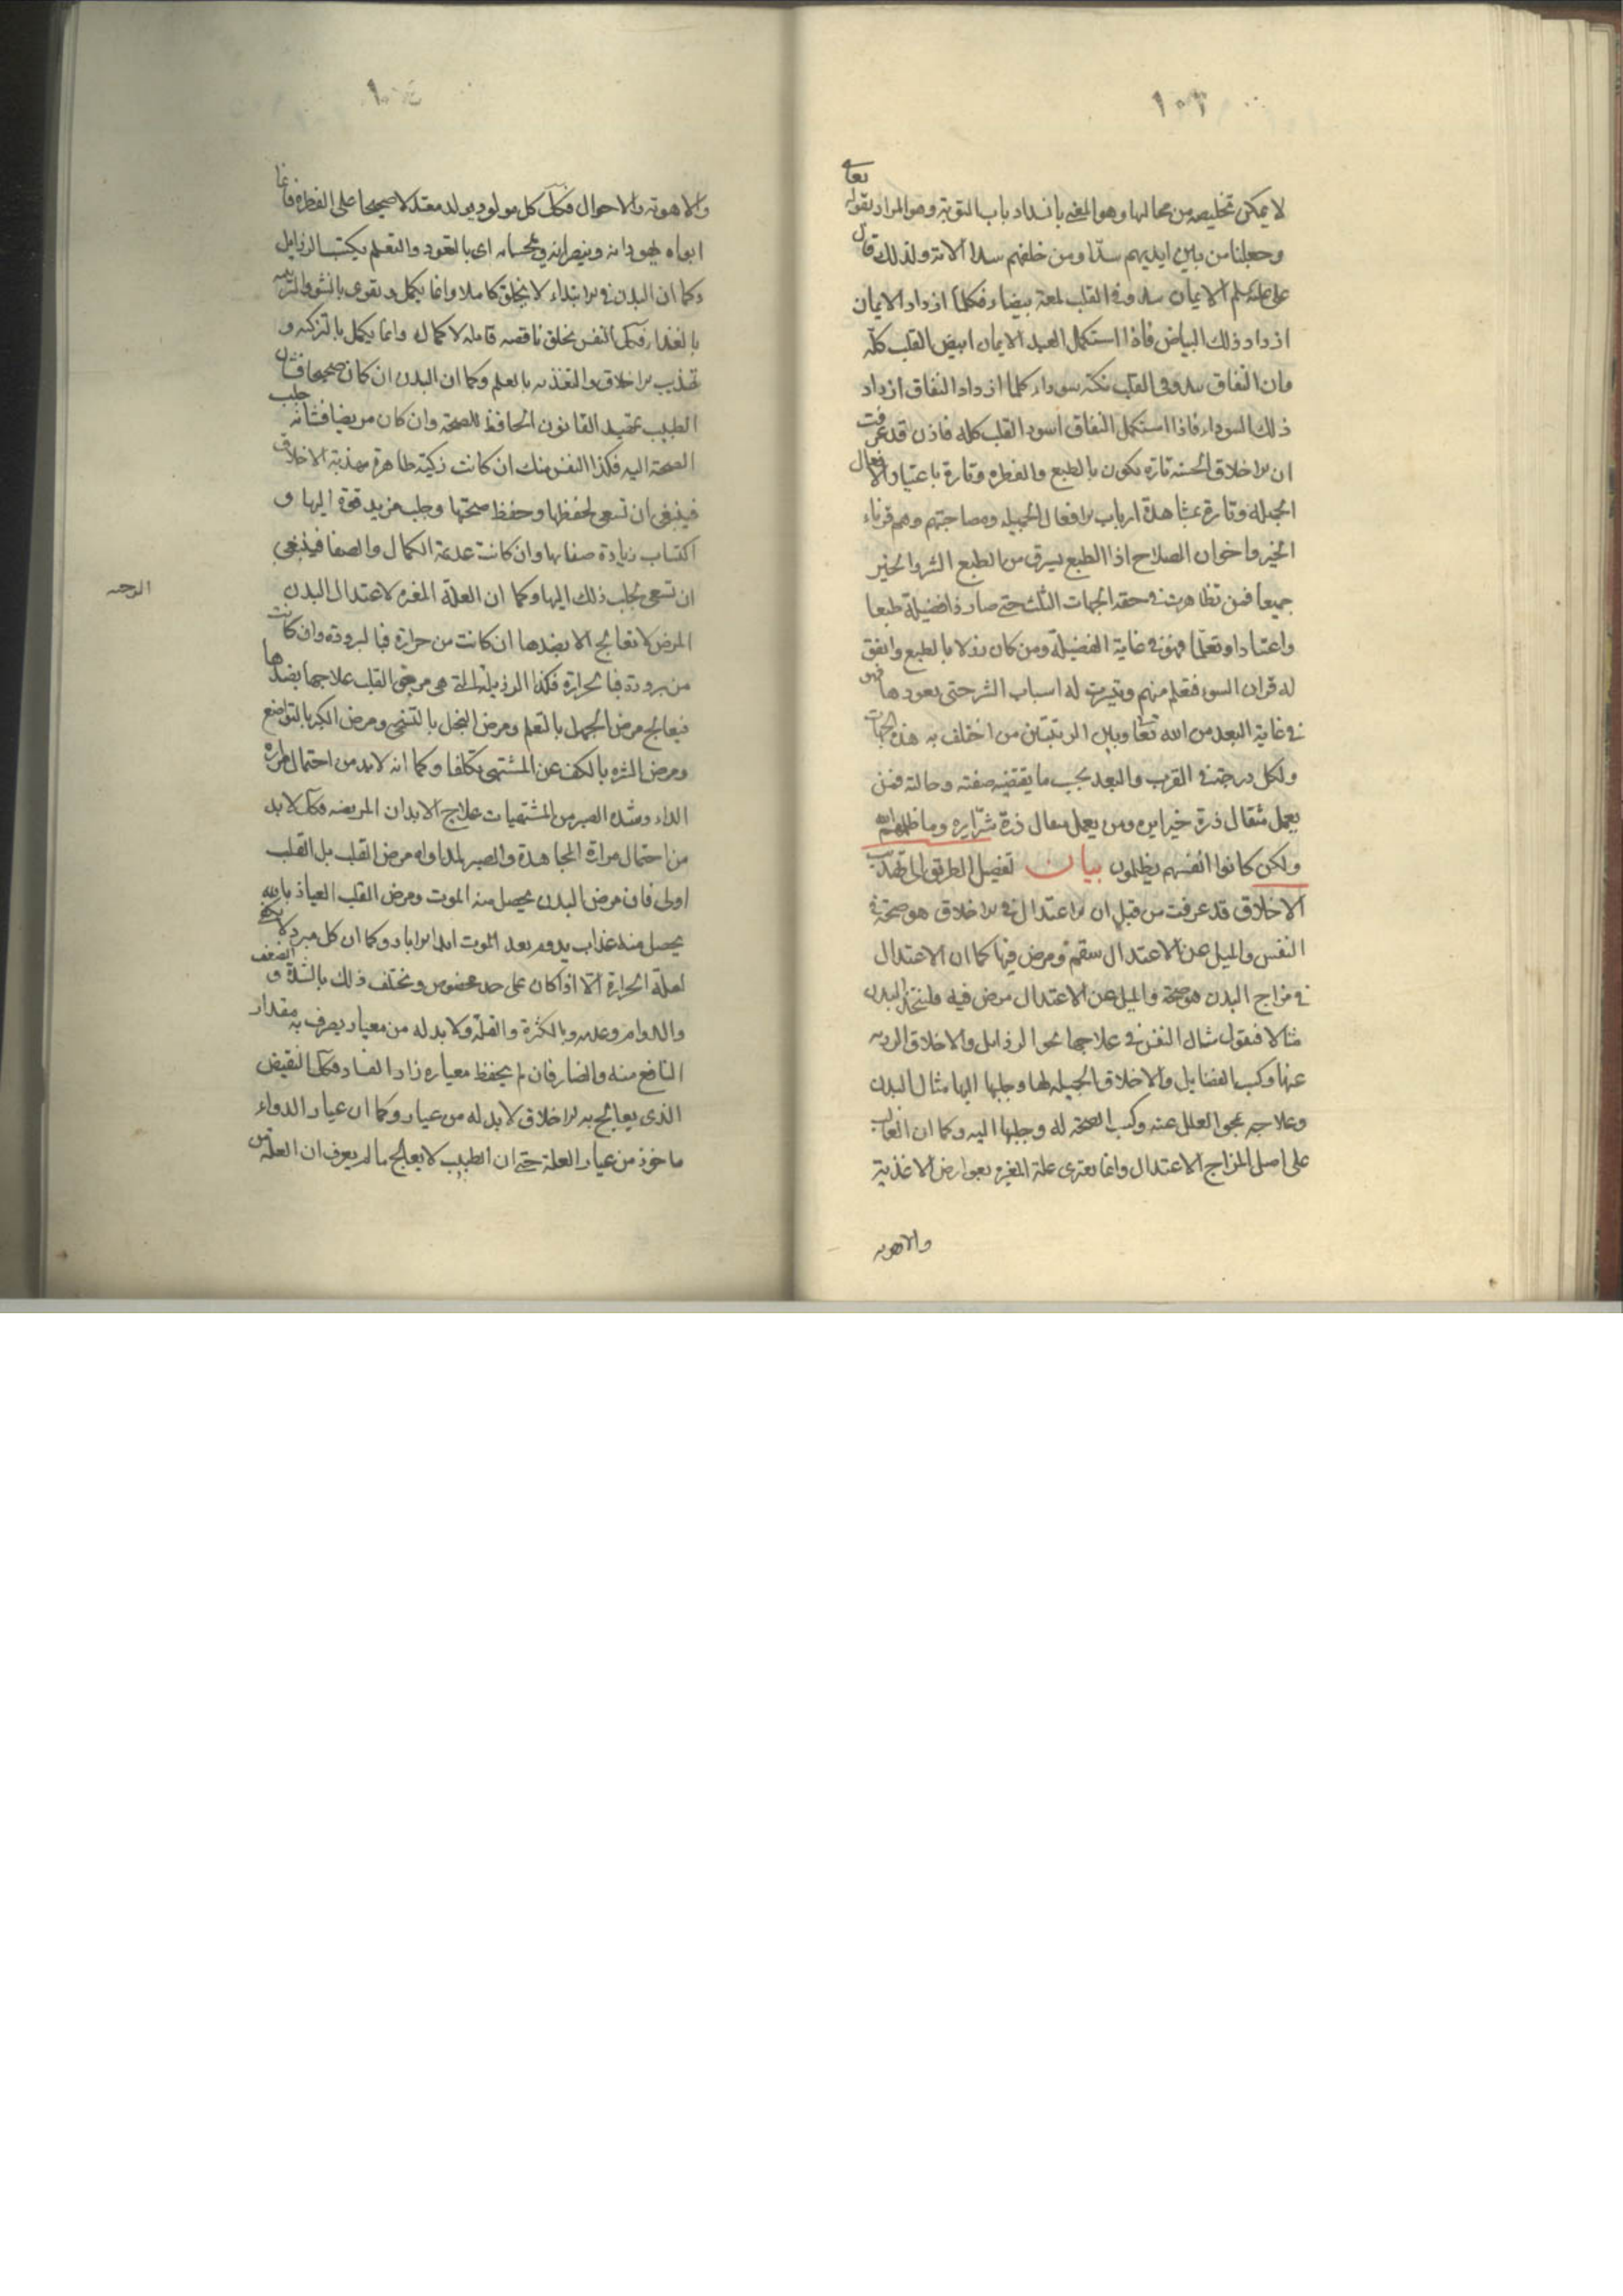 ١٠٣
لا يمكن تخليصه من مجالها وهو المعنى بانسداد باب التوبة وهو المراد بقوله تعالى
وجعلنا من بين ايديهم سدّا ومن خلفهم سدا الاية ولذلك قال
على علیه سلم الايمان يبدو في القلب لمعة بيضاء فكلما ازداد الايمان
ازداد ذلك البياض فاذا استكمل العبد الايمان ابيض القلب كلّه
وان النفاق يبدو في القلب نكتة سوداء كلما ازداد النفاق ازداد
ذلك السواد فاذا استكمل النفاق اسود القلب كله فاذن قد عرفت
ان الاخلاق الحسنه تارة تكون بالطبع والفطره وتارة باعتياد الافعال
الجميله وتارة بمشاهدة ارباب الافعال الجميله ومصاحبتهم وهم قرناء
الخير واخوان الصلاح اذا الطبع يسرق من الطبع الشر والخير
جميعا فمن تظاهرت في حقه الجهات الثلث حتى صار ذا فضيلة طبعا
واعتيادا وتعلّما فهو في غاية الفضيلة ومن كان رذلا بالطبع واتفق
له قران السوء فتعلم منهم وتيسرت له اسباب الشر حتى يعودها فهو
في غاية البعد من الله تعا وبين الرتبتين من اختلف به هذه الجهات
ولكل درجة في القرب والبعد بحسب ما يقتضيه صفته وحالته فمن
يعمل مثقال ذرة خيرا يره ومن يعمل مثقال ذرة شرّا يره وما ظلمهم الله
ولكن كانوا انفسهم يظلمون بيان تفصيل الطريق الى تهذيب
الاخلاق قد عرفت من قبل ان الاعتدال في الاخلاق هو صحة في
النفس والميل عن الاعتدال سقم ومرض فيها كما ان الاعتدال
في مزاج البدن هو صحة والميل عن الاعتدال مرض فيه فلنتخذ البدن
مثالا فنقول مثال النفس في علاجها بمحو الرذايل والاخلاق الرديه
عنها وكسب الفضايل والاخلاق الجميله لها وجلبها اليها مثال البدن
وعلاجه بمحو العلل عنه وكسب الصحة له وجلبها اليه وكما ان الغالب
على اصل المزاج الاعتدال وانما يعترى علة المغيره بعوارض الاغذية
والاهويه
١٠٤
والاهوية والاحوال فكك كل مولود يولد معتدلا صحيحا على الفطره فانما
ابواه يهودانه وينصرانه ويمجسانه اى بالتعود والتعلم يكتسب الرذايل
وكما ان البدن في الابتداء لا يخلق كاملا وانما يكمل ويقوى بالنشو والتربيه
بالغذاء فكك النفس يخلق ناقصه قابله لا كمال له وانما يكمل بالتزكيه و
تهذيب الاخلاق والتغذيه بالعلم وكما ان البدن ان كان صحيحا فشان
الطبيب تمهيد القانون الحافظ للصحة وان كان مريضا فشانه جلب
الصحة اليه فكذا النفس منك ان كانت زكية طاهرة مهذبة الاخلاق
فينبغى ان تسعى لحفظها وحفظ صحتها وجلب مزيد قوة اليها و
اكتساب زيادة صفايها وان كانت عديمة الكمال والصفا فينبغى
ان تسعى بجلب ذلك اليها وكما ان العلة المغيره لاعتدال البدن الموجبه
المرض لا تعالج الا بضدها ان كانت من حرارة فبالبرودة وان كانت
من برودة فبالحرارة فكذا الرذيلة التى هي مرض القلب علاجها بضدها
فيعالج مرض الجهل بالتعلم ومرض البخل بالتسخى ومرض الكبر بالتواضع
ومرض الشره بالكف عن المشتهى تكلفا وكما انه لابد من احتمال مرارة
الداء وشدة الصبر من المشتهيات علاج الابدان المريضه فكك لابد
من احتمال مرارة المجاهدة والصبر لمداواه مرض القلب بل القلب
اولى فان مرض البدن يحصل منه الموت ومرض القلب العياذ بالله
يحصل منه عذاب يدوم بعد الموت ابدا الاباد وكما ان كل مبرد لا يكفى
لعلة الحرارة الّا اذا كان على حد مخصوص ويختلف ذلك بالشدة و الضعف
والدوام وعدمه وبالكثرة والقلة ولا بد له من معيار يعرف به مقدار
النافع منه والضار فان لم يحفظ معياره زاد الفساد فكك النقيض
الذى يعالج به الاخلاق لابد له من عيار وكما ان عيار الدواء
ماخوذ من عيار العلة حتى ان الطبيب لا يعالج ما لم يعرف ان العلة من